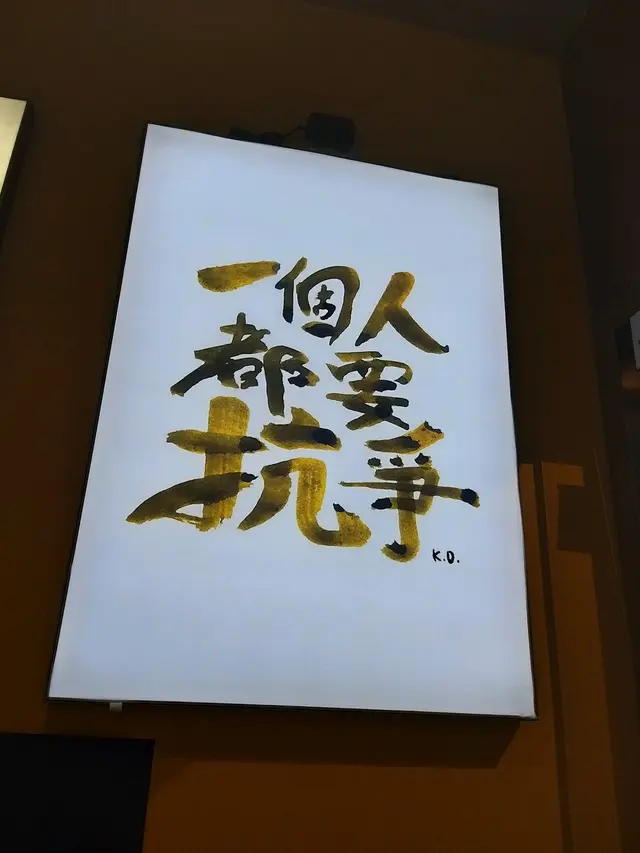 一個人
都要
抗爭
K.D.